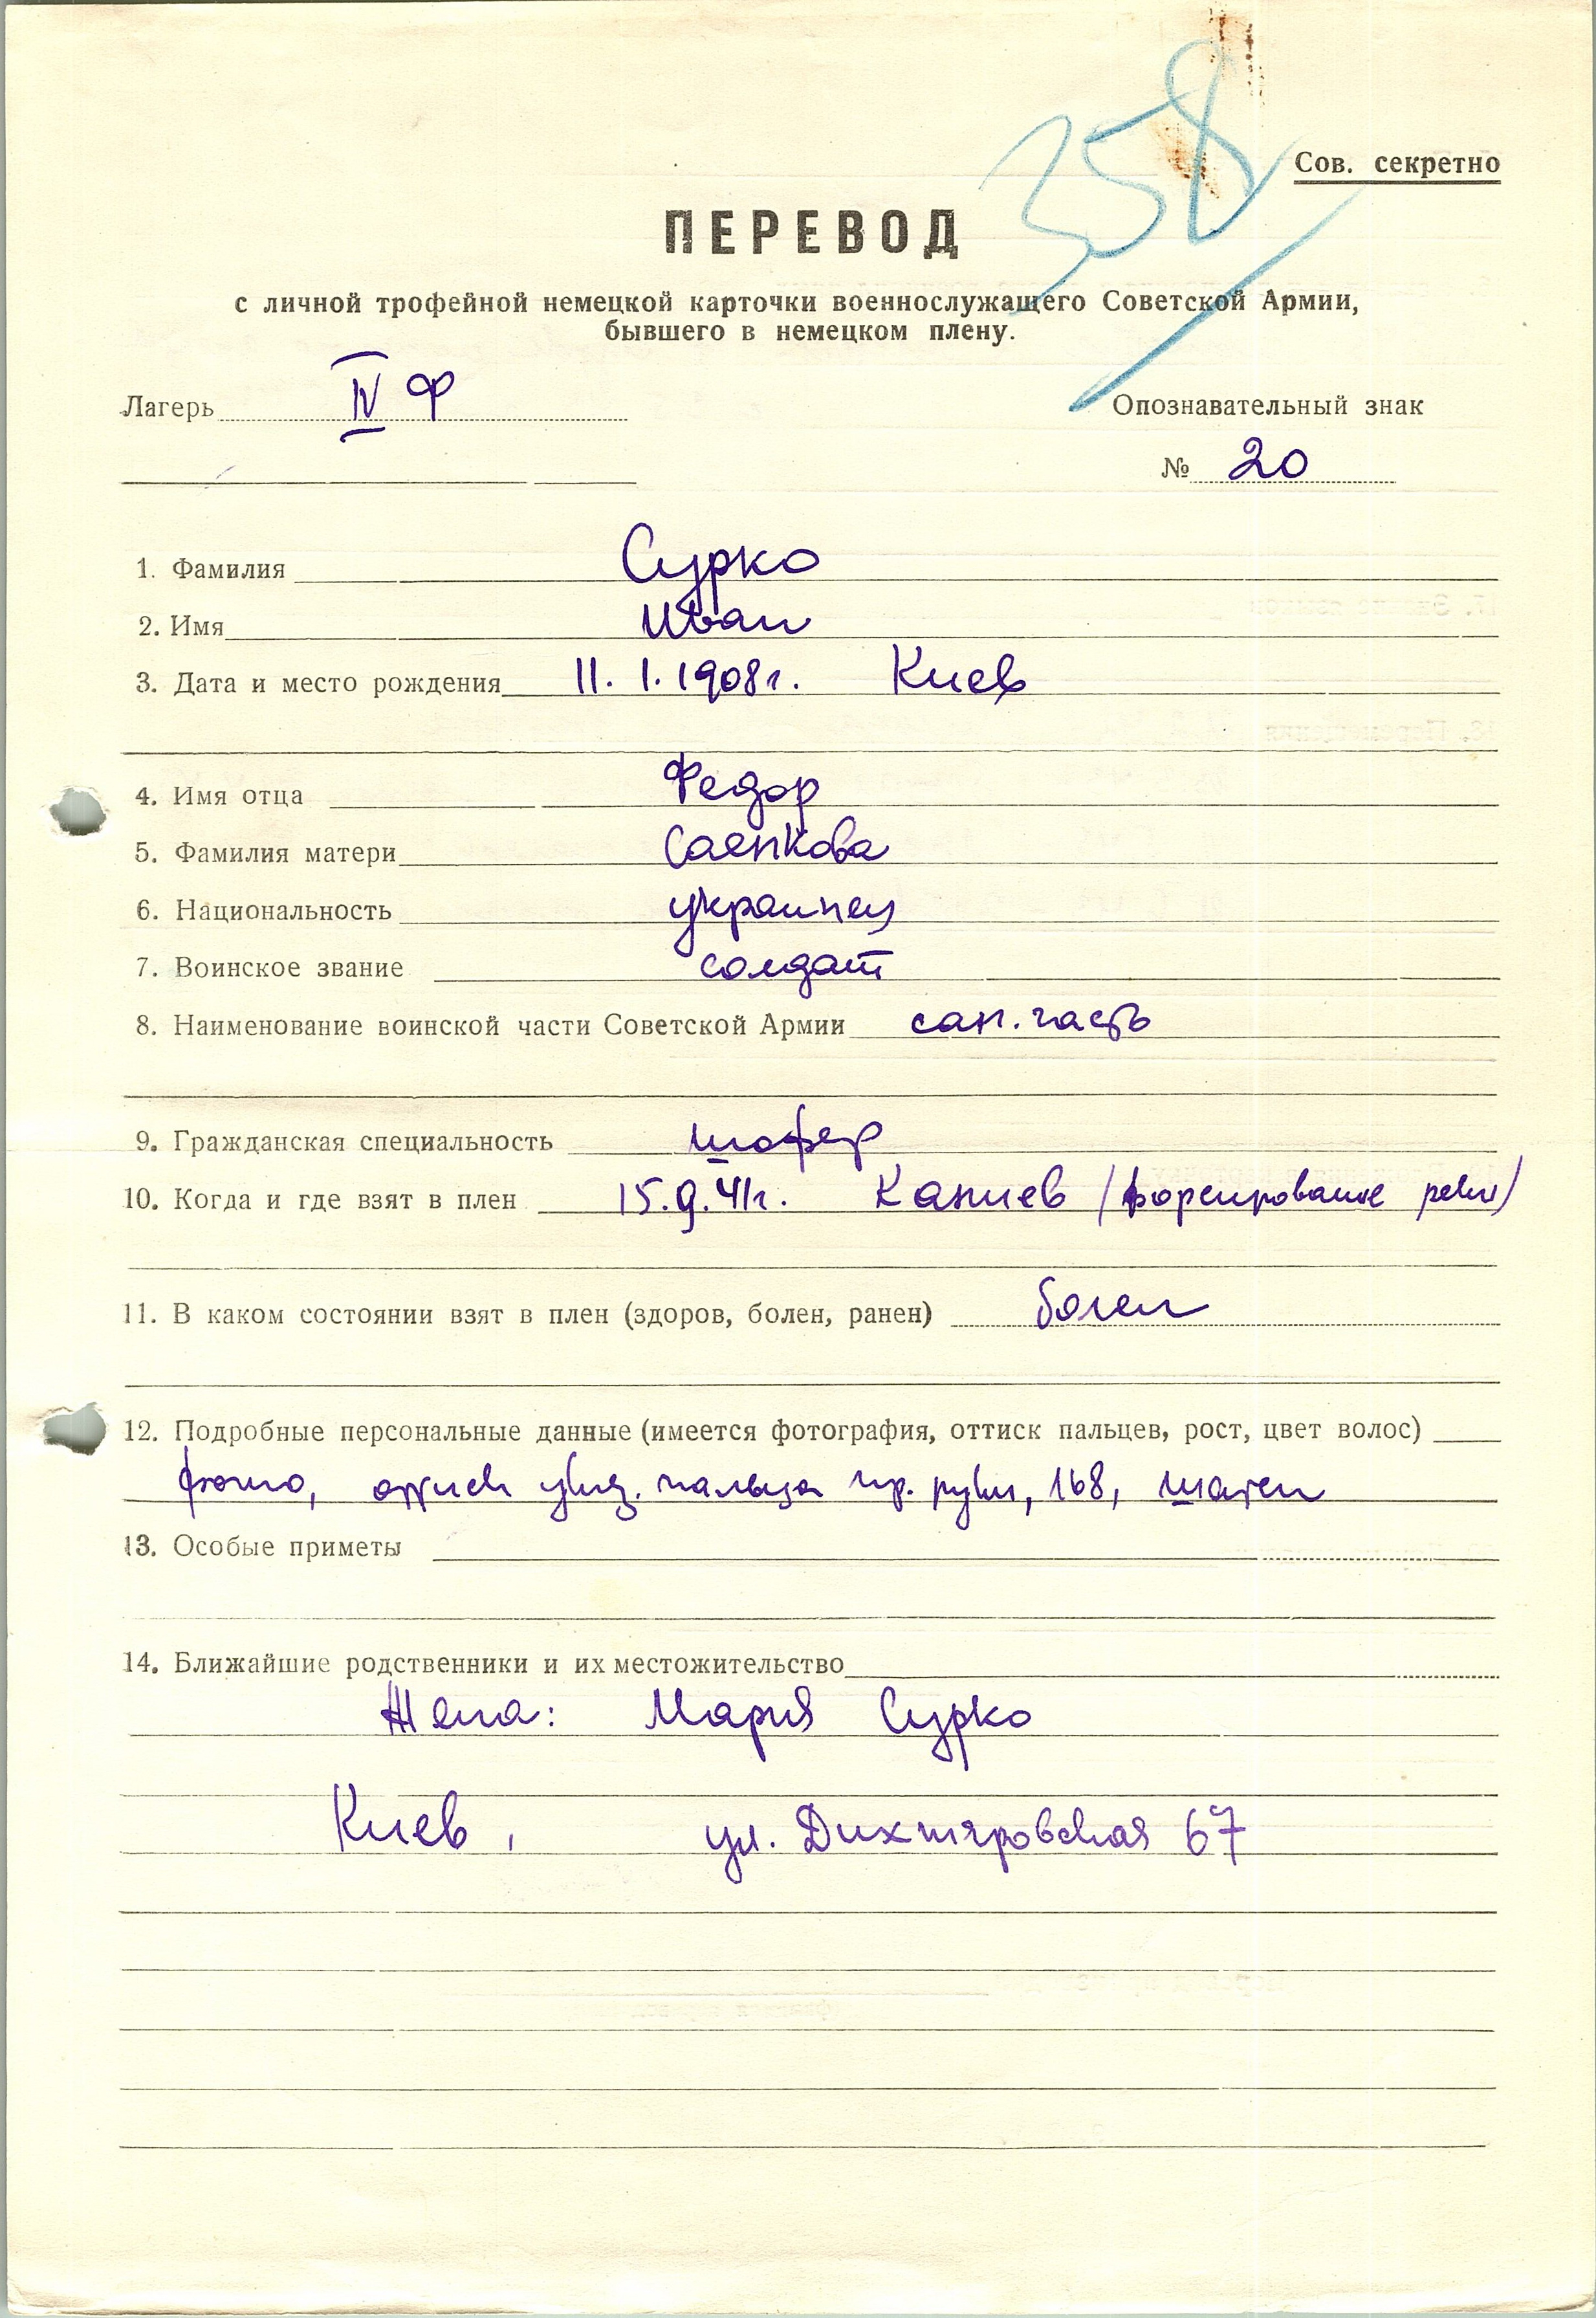 358
Сов. секретно
ПЕРЕВОД
с личной трофейной немецкой карточки военнослужащего Советской Армии,
бывшего в немецком плену.
Лагерь IV Ф
Опознавательный знак
№ 20
1. Фамилия Сурко
2. Имя Иван
3. Дата и место рождения 11. 1. 1908 г. Киев
4. Имя отца Федор
5. Фамилия матери
6. Национальность украинец
7. Воинское звание солдат
8. Наименование воинской части Советской Армии сан. часть
9. Гражданская специальность шофер
10. Когда и где взят в плен 15.9.41 г. Каниев (форсирование реки)
11. В каком состоянии взят в плен (здоров, болен, ранен) болен
12. Подробные персональные данные (имеется фотография, оттиск пальцев, рост, цвет волос)
фото, оттиск указ. пальца пр. руки, 168, шатен
13. Особые приметы
14. Ближайшие родственники и их местожительство
Жена: Мария Сурко
Киев, ул. Дихтяровская 67